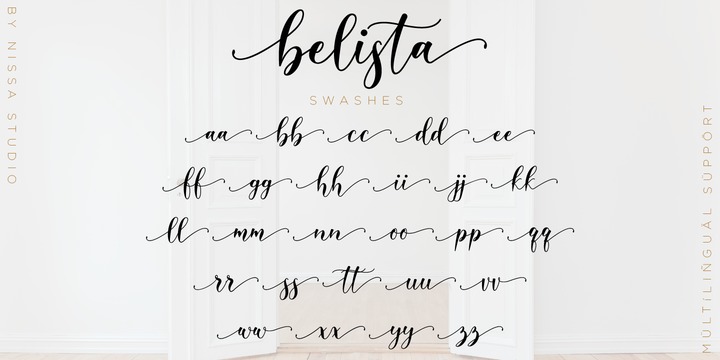 belista
SWASHES
aa bb cc dd ee
ff gg hh ii jj kk
ll mm nn oo pp qq
rr ss tt uu vv
ww xx yy zz
BY NISSA STUDIO
MÚLTIĹINGUÀL SÚPPÒRT